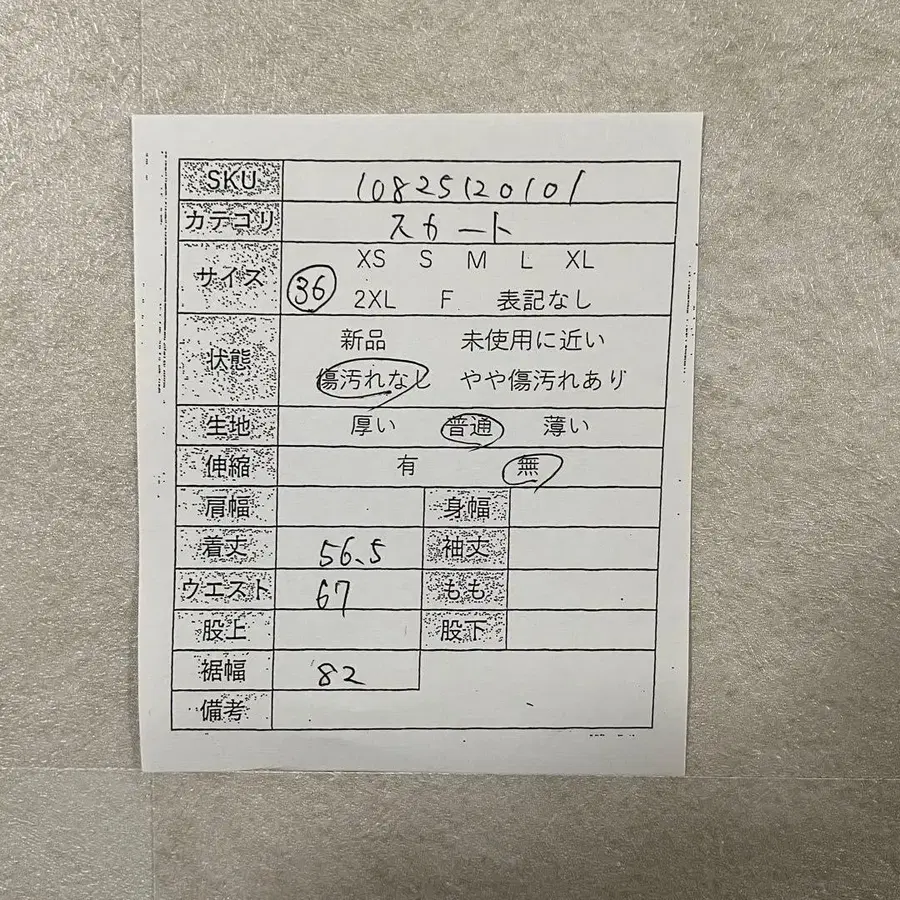 SKU 10825120101
カテゴリ スカート
サイズ XS S M L XL
36 2XL F 表記なし
状態 新品 未使用に近い
傷汚れなし やや傷汚れあり
生地 厚い 普通 薄い
伸縮 有 無
肩幅 身幅
着丈 56.5 袖丈
ウエスト 67 もも
股上 股下
裾幅 82
備考